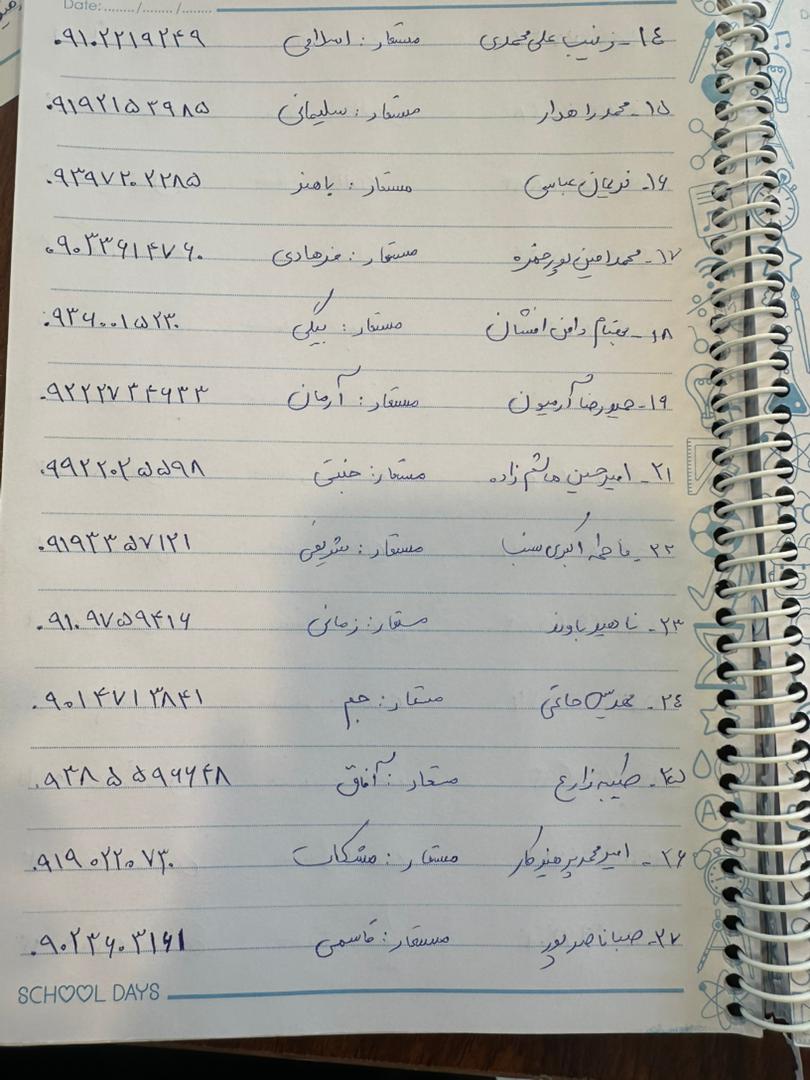 Date: ....../....../......
۱۴- زینب علی محمدی مستعار: اسلامی ۰۹۱۰۲۲۱۹۲۴۹
۱۵- محمد راهدار مستعار: سلیمانی ۰۹۱۹۲۱۵۳۹۸۵
۱۶- نریمان عباسی مستعار: باهنر ۰۹۳۹۷۲۰۲۲۸۵
۱۷- محمدامین پورحمزه مستعار: فرهادی ۰۹۰۳۳۶۱۴۷۶۰
۱۸- دامن افشان مستعار: بیگی ۰۹۳۶۰۰۱۵۲۳۰
۱۹- حمیدرضا آرمیون مستعار: آرمان ۰۹۲۲۲۷۳۴۶۳۳
۲۱- امیرحسین هاشم زاده مستعار: جنتی ۰۹۹۲۲۰۲۵۵۹۸
۲۲- فاطمه اکبری مستعار: شریفی ۰۹۱۹۳۳۵۷۱۲۱
۲۳- ناهید باوند مستعار: زمانی ۰۹۱۰۹۷۵۹۴۱۶
۲۴- حاتمی مستعار: جم ۰۹۰۱۴۷۱۳۸۴۱
۲۵- طیبه زارع مستعار: آفاق ۰۹۳۸۵۵۹۶۶۴۸
۲۶- امیرمحمد پرهیزکار مستعار: مشکات ۰۹۱۹۰۲۲۰۷۳۰
۲۷- صبا ناصرپور مستعار: قاسمی ۰۹۰۲۳۶۰۳۱۶۱
SCHOOL DAYS